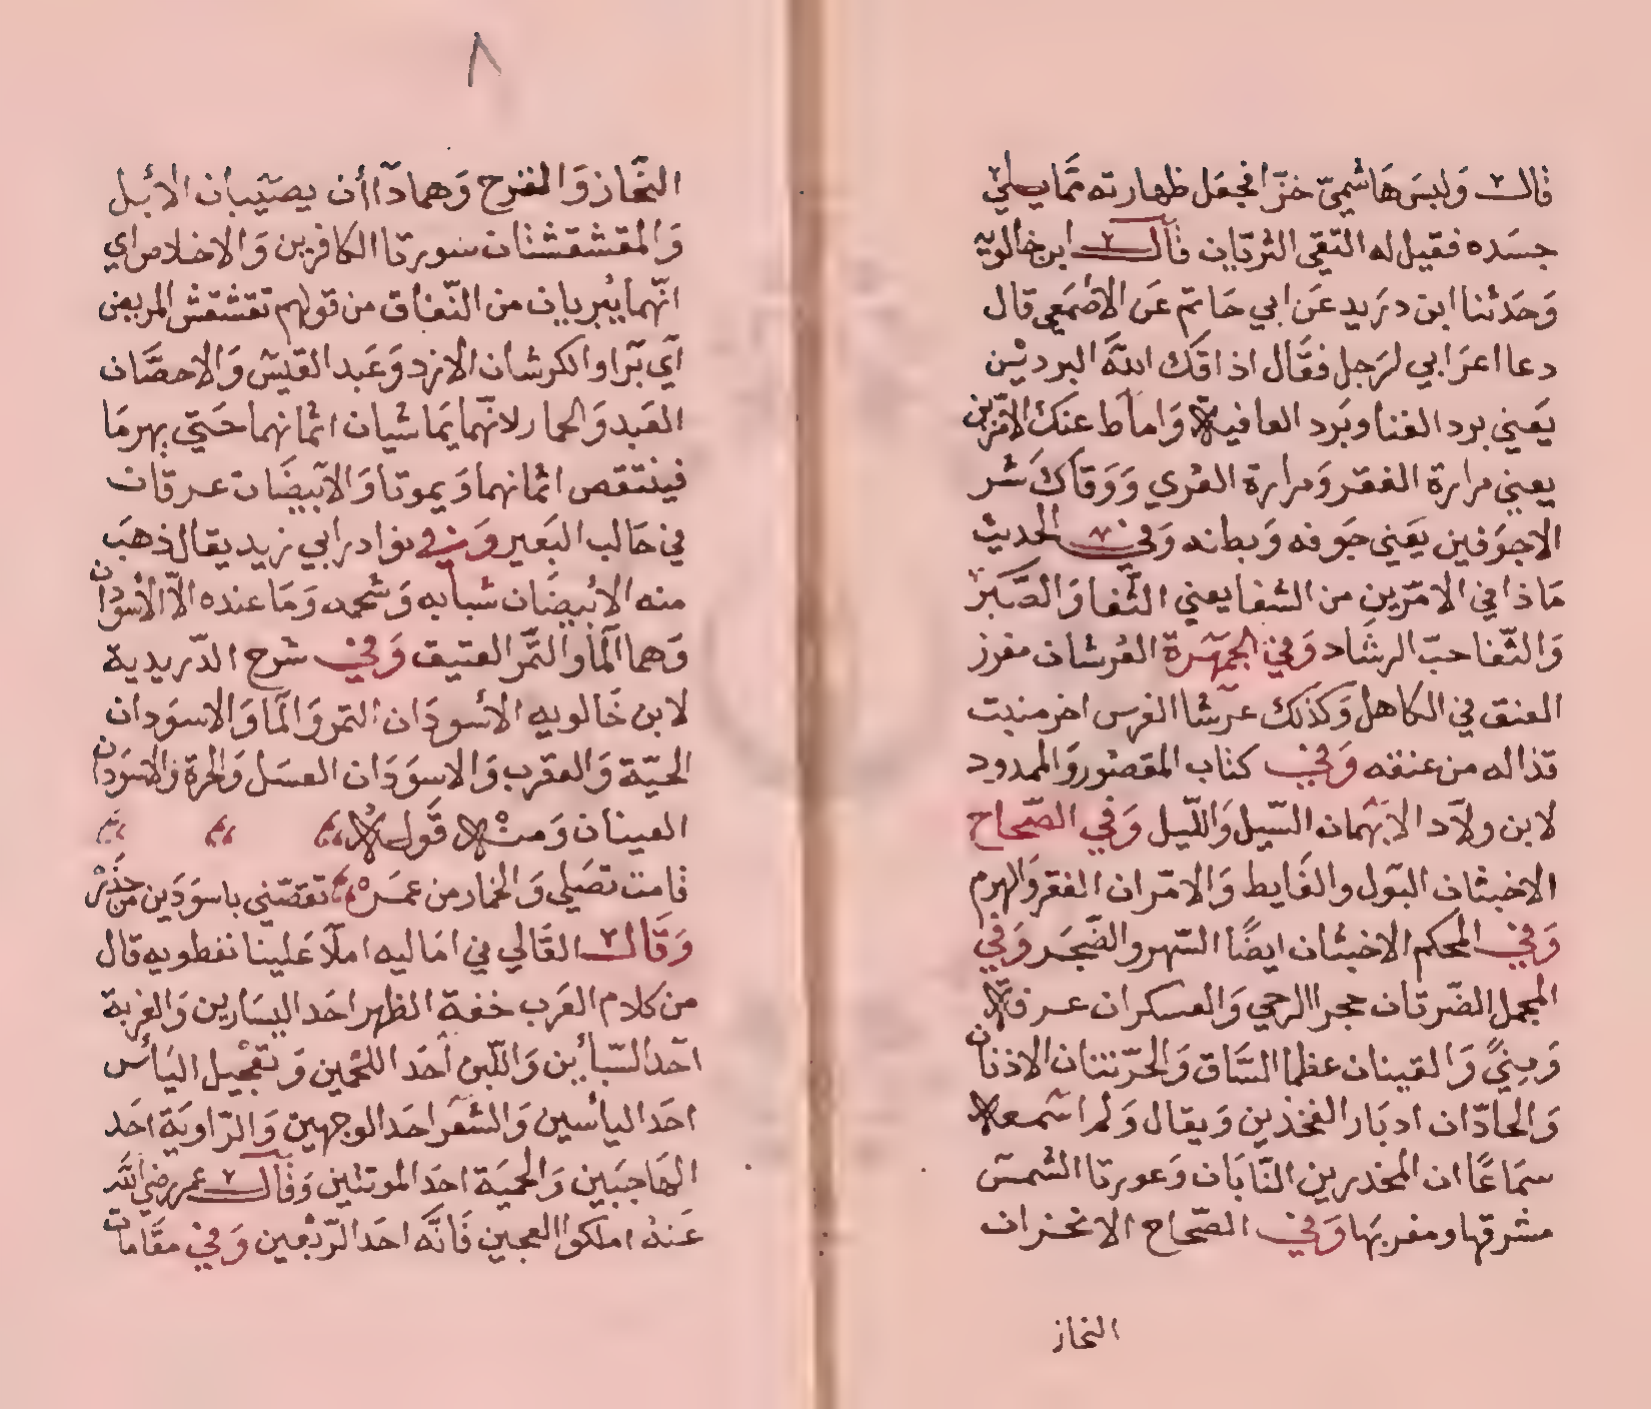 قال وَلبسَ هَاشميّ خزّا فجعَل ظهارته ممَّا يلي
جسَده فقيل له التقي الثريّان قال ابن خالويه
وَحَدثنا ابن دريد عَن ابي حَاتم عَن الاصْمَعي قال
دعا اعرَابي لرَجل فقَال اذاقك اللهَ البرديْن
يَعني برد الغنا وبَرد العافية وَاماط عنكَ الامرّين
يعني مرارة الفقر وَمرارة العُري وَوَقاكَ شر
الاجوَفين يَعني جَوفه وَبطنه وَفي الحديث
مَاذا في الامرّين من الشفا يعني الثّفا وَالصَّبر
وَالثّفا حبّ الرشاد وَفي الجمهَرة العُرشان مغرز
العنق في الكاهل وَكذلك عرشا الفرس اخر منبت
قذاله من عنقه وَفي كتاب المقصُور وَالممدود
لابن ولاّد الابهَمان السّيل وَاللّيل وَفي الصّحاح
الاخبثان البَول والغَايط وَالامرّان الفقر وَالهرم
وَفي المحكم الاخبثان ايضًا السّهر والضّجَر وَفي
المجمل الضّرتان حجر الرحي وَالعسكران عرفة
وَمِنيً وَالقينان عظما السَّاق وَالحرّتان الاذنان
وَالحاذّان ادبَار الفخذين وَيقال وَلم اسمعه
سمَاعًا ان المخدرين النّابَان وَعورتا الشمسَ
مشرقها ومغربهَا وَفي الصّحاح الانخزان
النحاز
٨
النّحَاز وَالقرح وَهما دَآأن يصيَبان الابٔل
وَالمقشقشتان سورتا الكافرين وَالاخلاص اي
انّهما يُبريان من النّفاق من قولهم تقشقش المريض
آي بَرا والكرشان الازد وَعَبد القيسَ وَالاحصَّان
العَبد وَالحمار لانّهما يمَاشيان اثمانهما حَتي يهرمَا
فينتقص اثمانهما وَيموتا وَالابيضَان عرقان
في حَالب البَعير وَفي نوادر ابي زيد يقال ذهبَ
منه الابْيضَان شبابه وَشحمه وَمَا عنده الاّ الأسْوَدان
وَهما المَا وَالتّمر العتيق وَفي شرح الدّريدية
لابن خَالويه الأسودَان التمر وَالمَا وَالاسوَدان
الحيّة وَالعقرب وَالاسوَدَان العسَل وَالحرة وَالاسوَدان
العينان وَمنْه قَوله
قامت تصَلي وَالخمار من عمَرْ تقصّني باسوَدَين من حَذَرْ
وَقَال القَالي في امَاليه املاَ عَلينا نفطويه قال
من كلام العَرب خفة الظهر احَد اليسَارين وَالغربة
احَد السّبأين وَاللّبن أحَد اللحْمين وَتعْجيل اليَأس
احَد اليأسين وَالشعَر احَد الوجهين وَالرّاويَة احَد
الهَاجبَين وَالحميَة احَد الموتتين وَقَال عمر رضي الله
عَنهْ املكوا العجين فَانَّه احَد الرّيْعين وَفي مقَامات